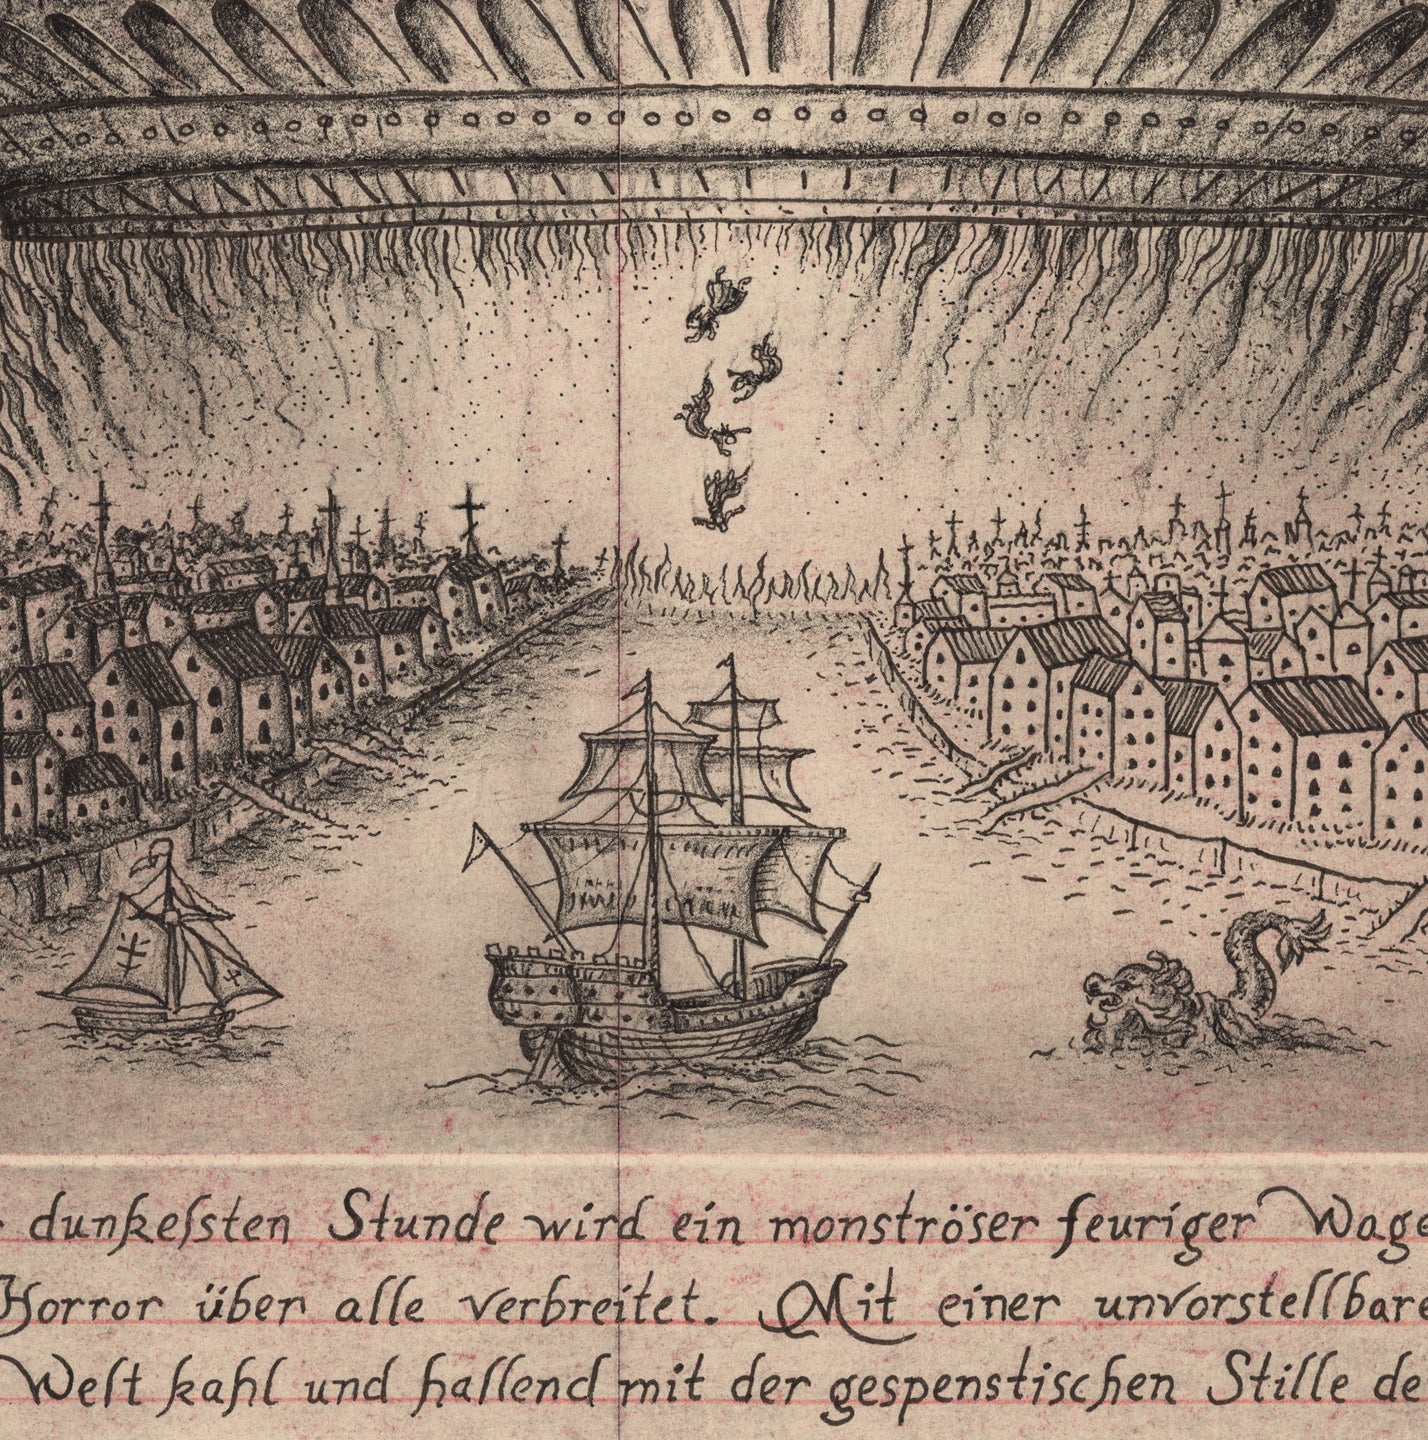 dunkelsten Stunde wird ein monströser feuriger Wage
Horror über alle verbreitet. Mit einer unvorstellbare
Welt kahl und hallend mit der gespenstischen Stille de